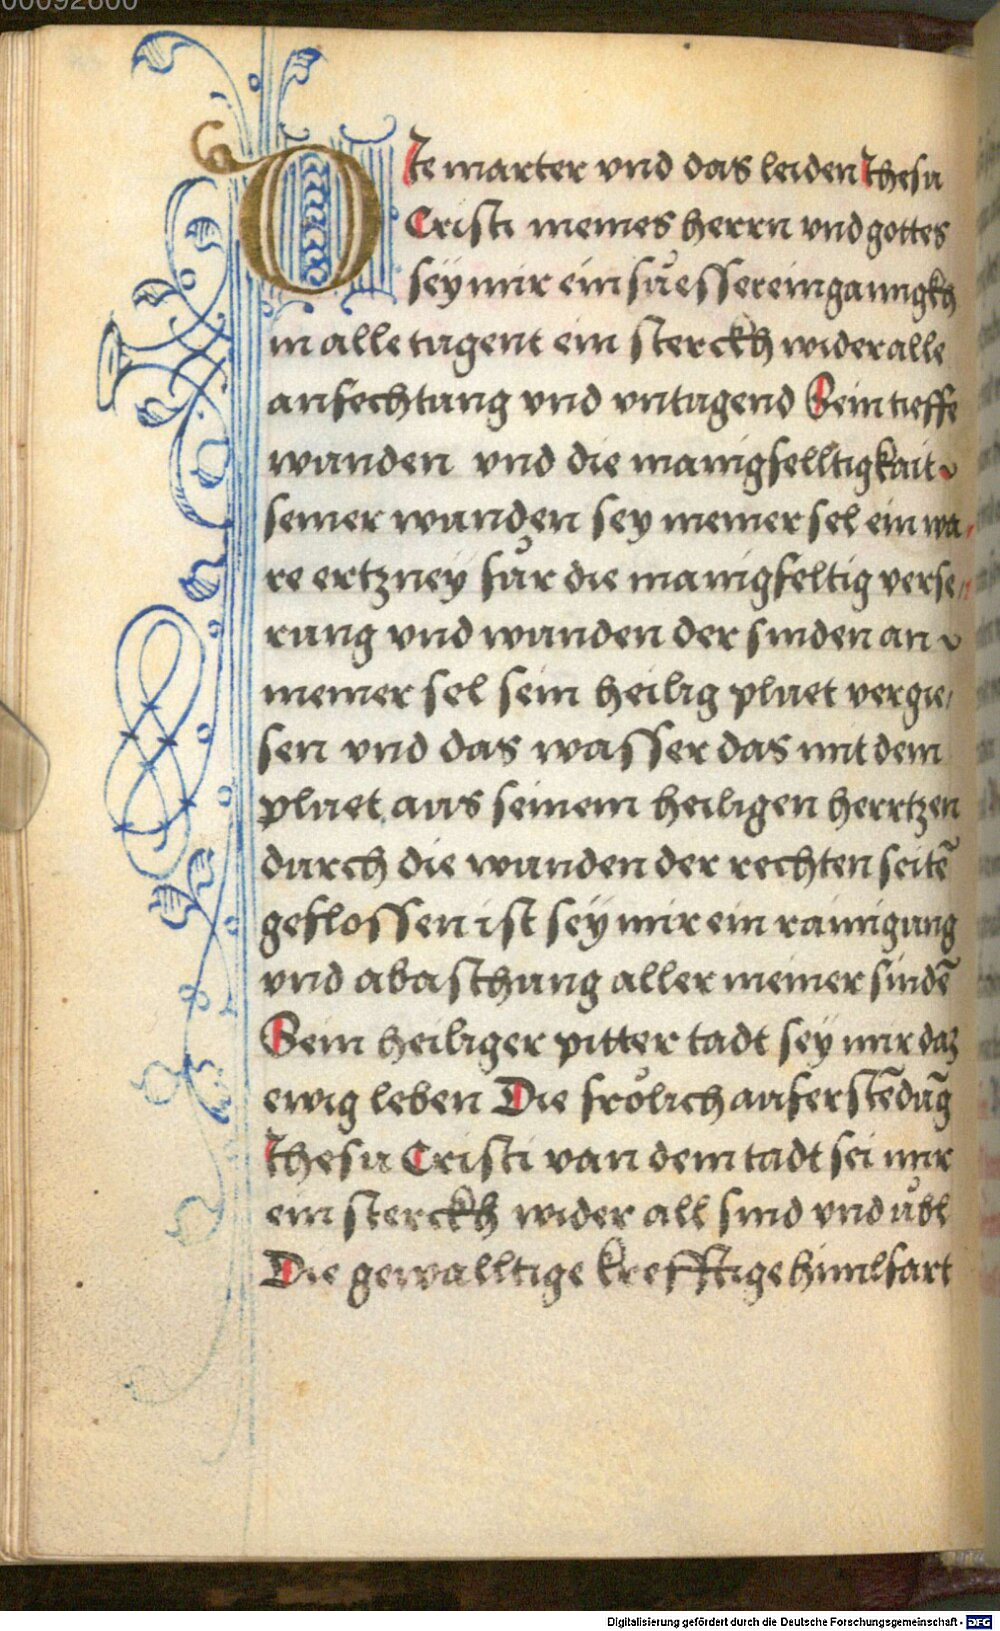 00092800
DIe marter vnd das leiden Ihesu
Cristi meines herrn vnd gottes
sey mir ein süesser einganngkh
in alle tugent ein sterckh wider alle
anfechtung vnd vntugend Sein tieffe
wunden vnd die manigfelltigkait
seiner wunden sey meiner sel ein wa/
re ertzney für die manigfeltig verse//
rung vnd wunden der sinden an
meiner sel sein heilig pluet vergie/
sen vnd das wasser das mit dem
pluet aus seinem heiligen herrtzen
durch die wunden der rechten seitē
geflossen ist sey mir ein rainigung
vnd abaschung aller meiner sindē
Sein heiliger pitter tadt sey mir daz
ewig leben Die frölich auferstēdūg
Ihesu Cristi van dem tadt sei mir
ein sterckh wider all sind vnd übl
Die gewalltige krefftige himlfart
Digitalisierung gefördert durch die Deutsche Forschungsgemeinschaft - DFG